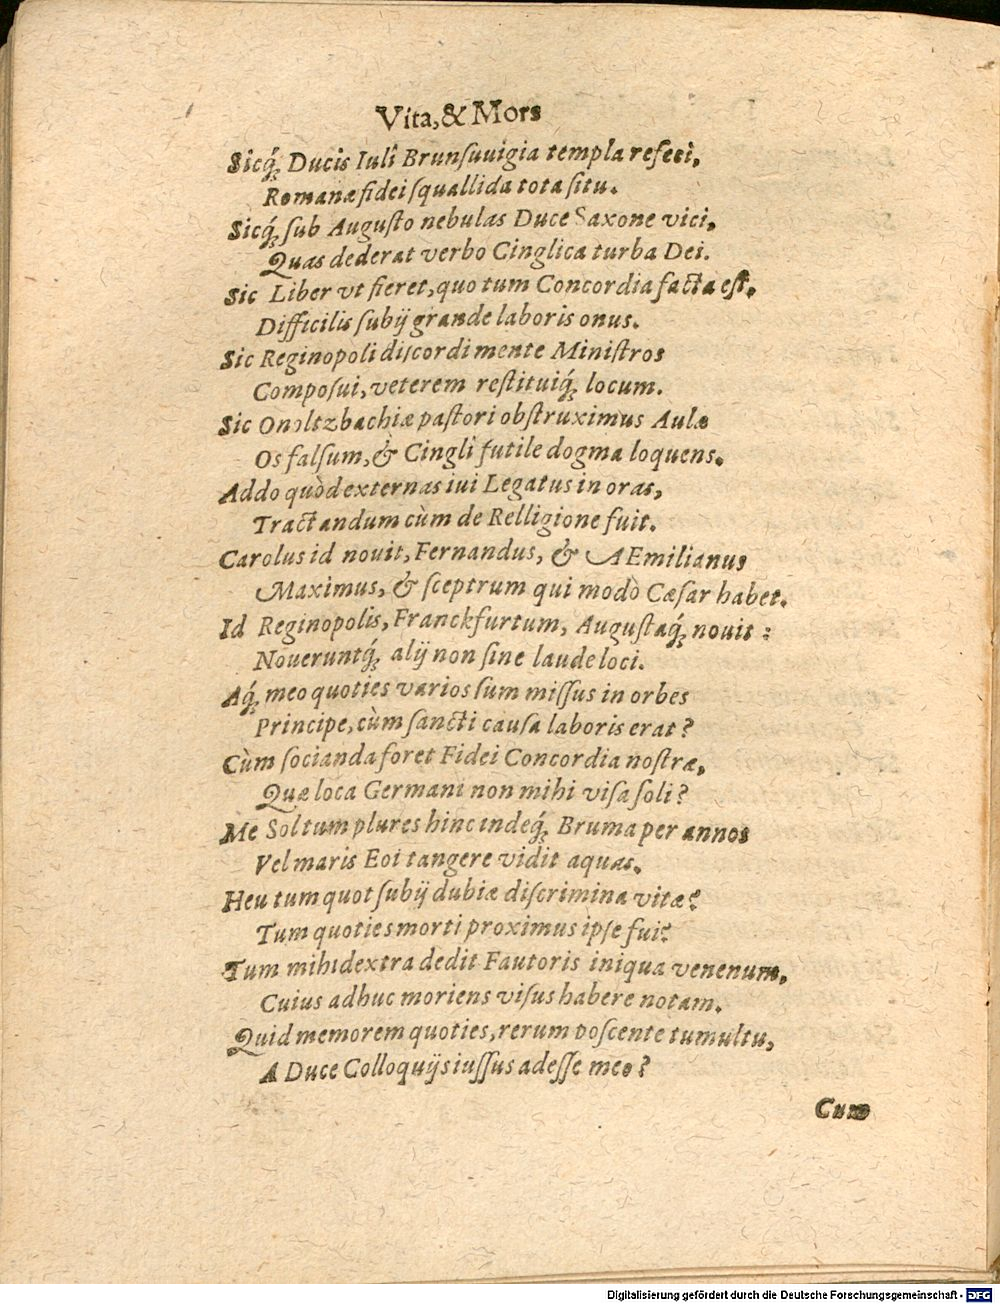 Vita, & Mors
Sicq́; Ducis Iulî Brunſuuigia templa refeci,
Romanæ fidei ſquallida tota ſitu.
Sicq́; ſub Auguſto nebulas Duce Saxone vici,
Quas dederat verbo Cinglica turba Dei.
Sic Liber vt fieret, quo tum Concordia facta eſt,
Difficilis ſubij grande laboris onus.
Sic Reginopoli diſcordi mente Miniſtros
Compoſui, veterem reſtituiq́; locum.
Sic Onoltzbachiæ paſtori obſtruximus Aulæ
Os falſum, & Cinglî futile dogma loquens.
Addo quòd externas iui Legatus in oras,
Tractandum cùm de Relligione fuit.
Carolus id novit, Fernandus, & AEmilianus
Maximus, & ſceptrum qui modò Cæſar habet.
Id Reginopolis, Franckfurtum, Auguſtaq́; novit :
Noueruntq́; alij non ſine laude loci.
Aq́; meo quoties varios ſum miſſus in orbes
Principe, cùm ſancti cauſa laboris erat?
Cùm ſocianda foret Fidei Concordia noſtræ,
Quæ loca Germani non mihi viſa ſoli?
Me Sol tum plures hinc indeq́; Bruma per annos
Vel maris Eoi tangere vidit aquas.
Heu tum quot ſubij dubiæ diſcrimina vitæ?
Tum quoties morti proximus ipſe fui?
Tum mihi dextra dedit Fautoris iniqua venenum,
Cuius adhuc moriens viſus habere notam.
Quid memorem quoties, rerum poſcente tumultu,
A Duce Colloquijs iuſſus adeſſe meo?
Cum
Digitalisierung gefördert durch die Deutsche Forschungsgemeinschaft - DFG